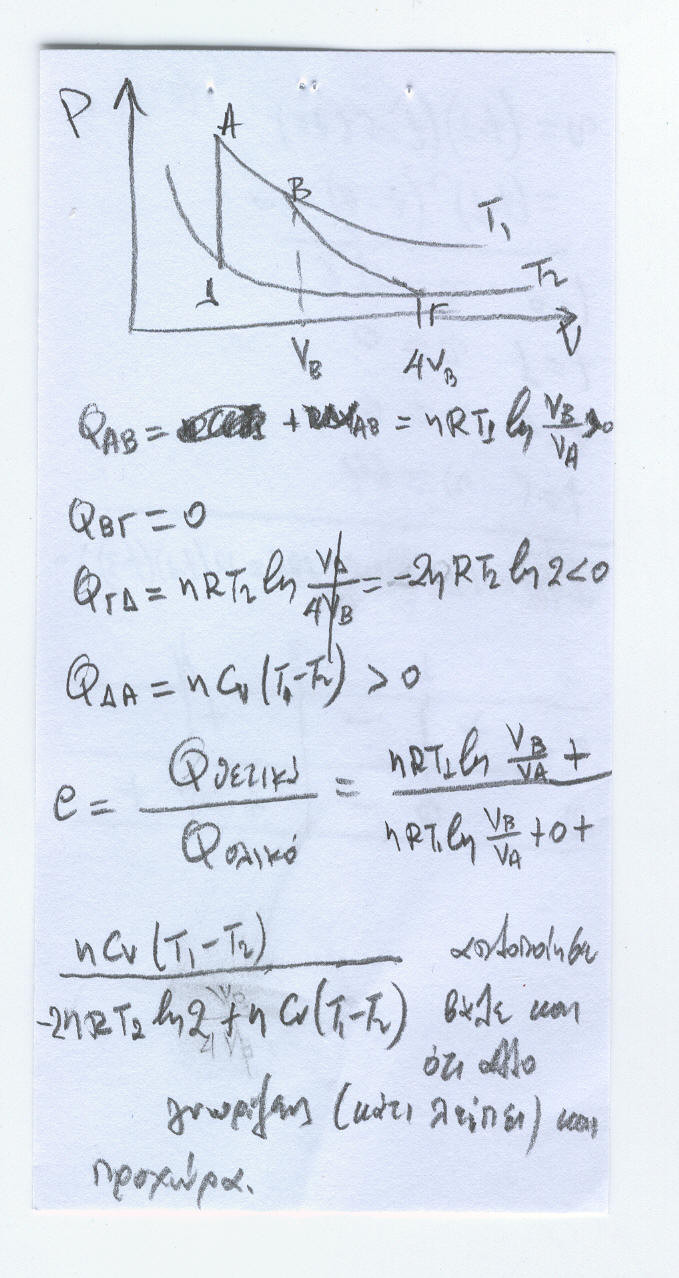 P
A
B
T₁
T₂
Δ
Γ
V
V_B
4V_B
Q_AB = + _AB = nRT₁ ln V_B/V_A > 0
Q_ΒΓ = 0
Q_ΓΔ = nRT₂ ln V_A/4V_B = -2nRT₂ ln 2 < 0
Q_ΔΑ = n Cv (T₁-T₂) > 0
e = Qθετικό/Qολικό = nRT₁ ln V_B/V_A + / nRT₁ ln V_B/V_A + 0 +
n Cv (T₁-T₂) / -2nRT₂ ln 2 + n Cv (T₁-T₂)
απλοποίησε
βγάλε και
ότι άλλο
γνωρίζεις (κάτι λείπει) και
προχώρα.